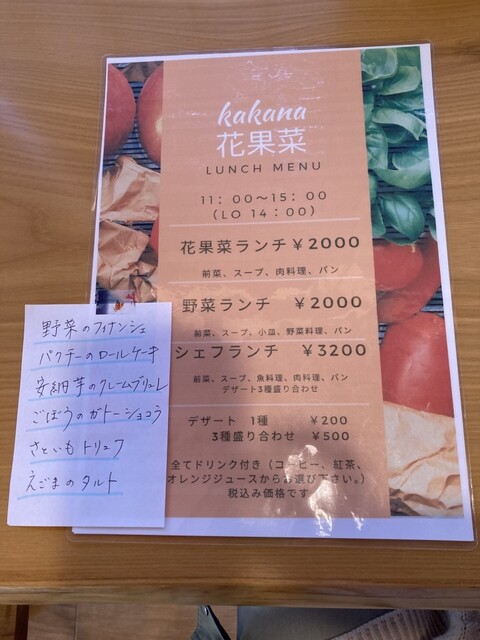 kakana
花果菜
LUNCH MENU
11：00～15：00
（LO 14：00）
花果菜ランチ ¥2000
前菜、スープ、肉料理、パン
野菜ランチ ¥2000
前菜、スープ、小皿、野菜料理、パン
シェフランチ ¥3200
前菜、スープ、魚料理、肉料理、パン
デザート3種盛り合わせ
デザート 1種 ¥200
3種盛り合わせ ¥500
全てドリンク付き（コーヒー、紅茶、
オレンジジュースからお選び下さい。）
税込み価格です
野菜のフィナンシェ
パクチーのロールケーキ
安納芋のクレームブリュレ
ごぼうのガトーショコラ
さといもトリュフ
えごまのタルト